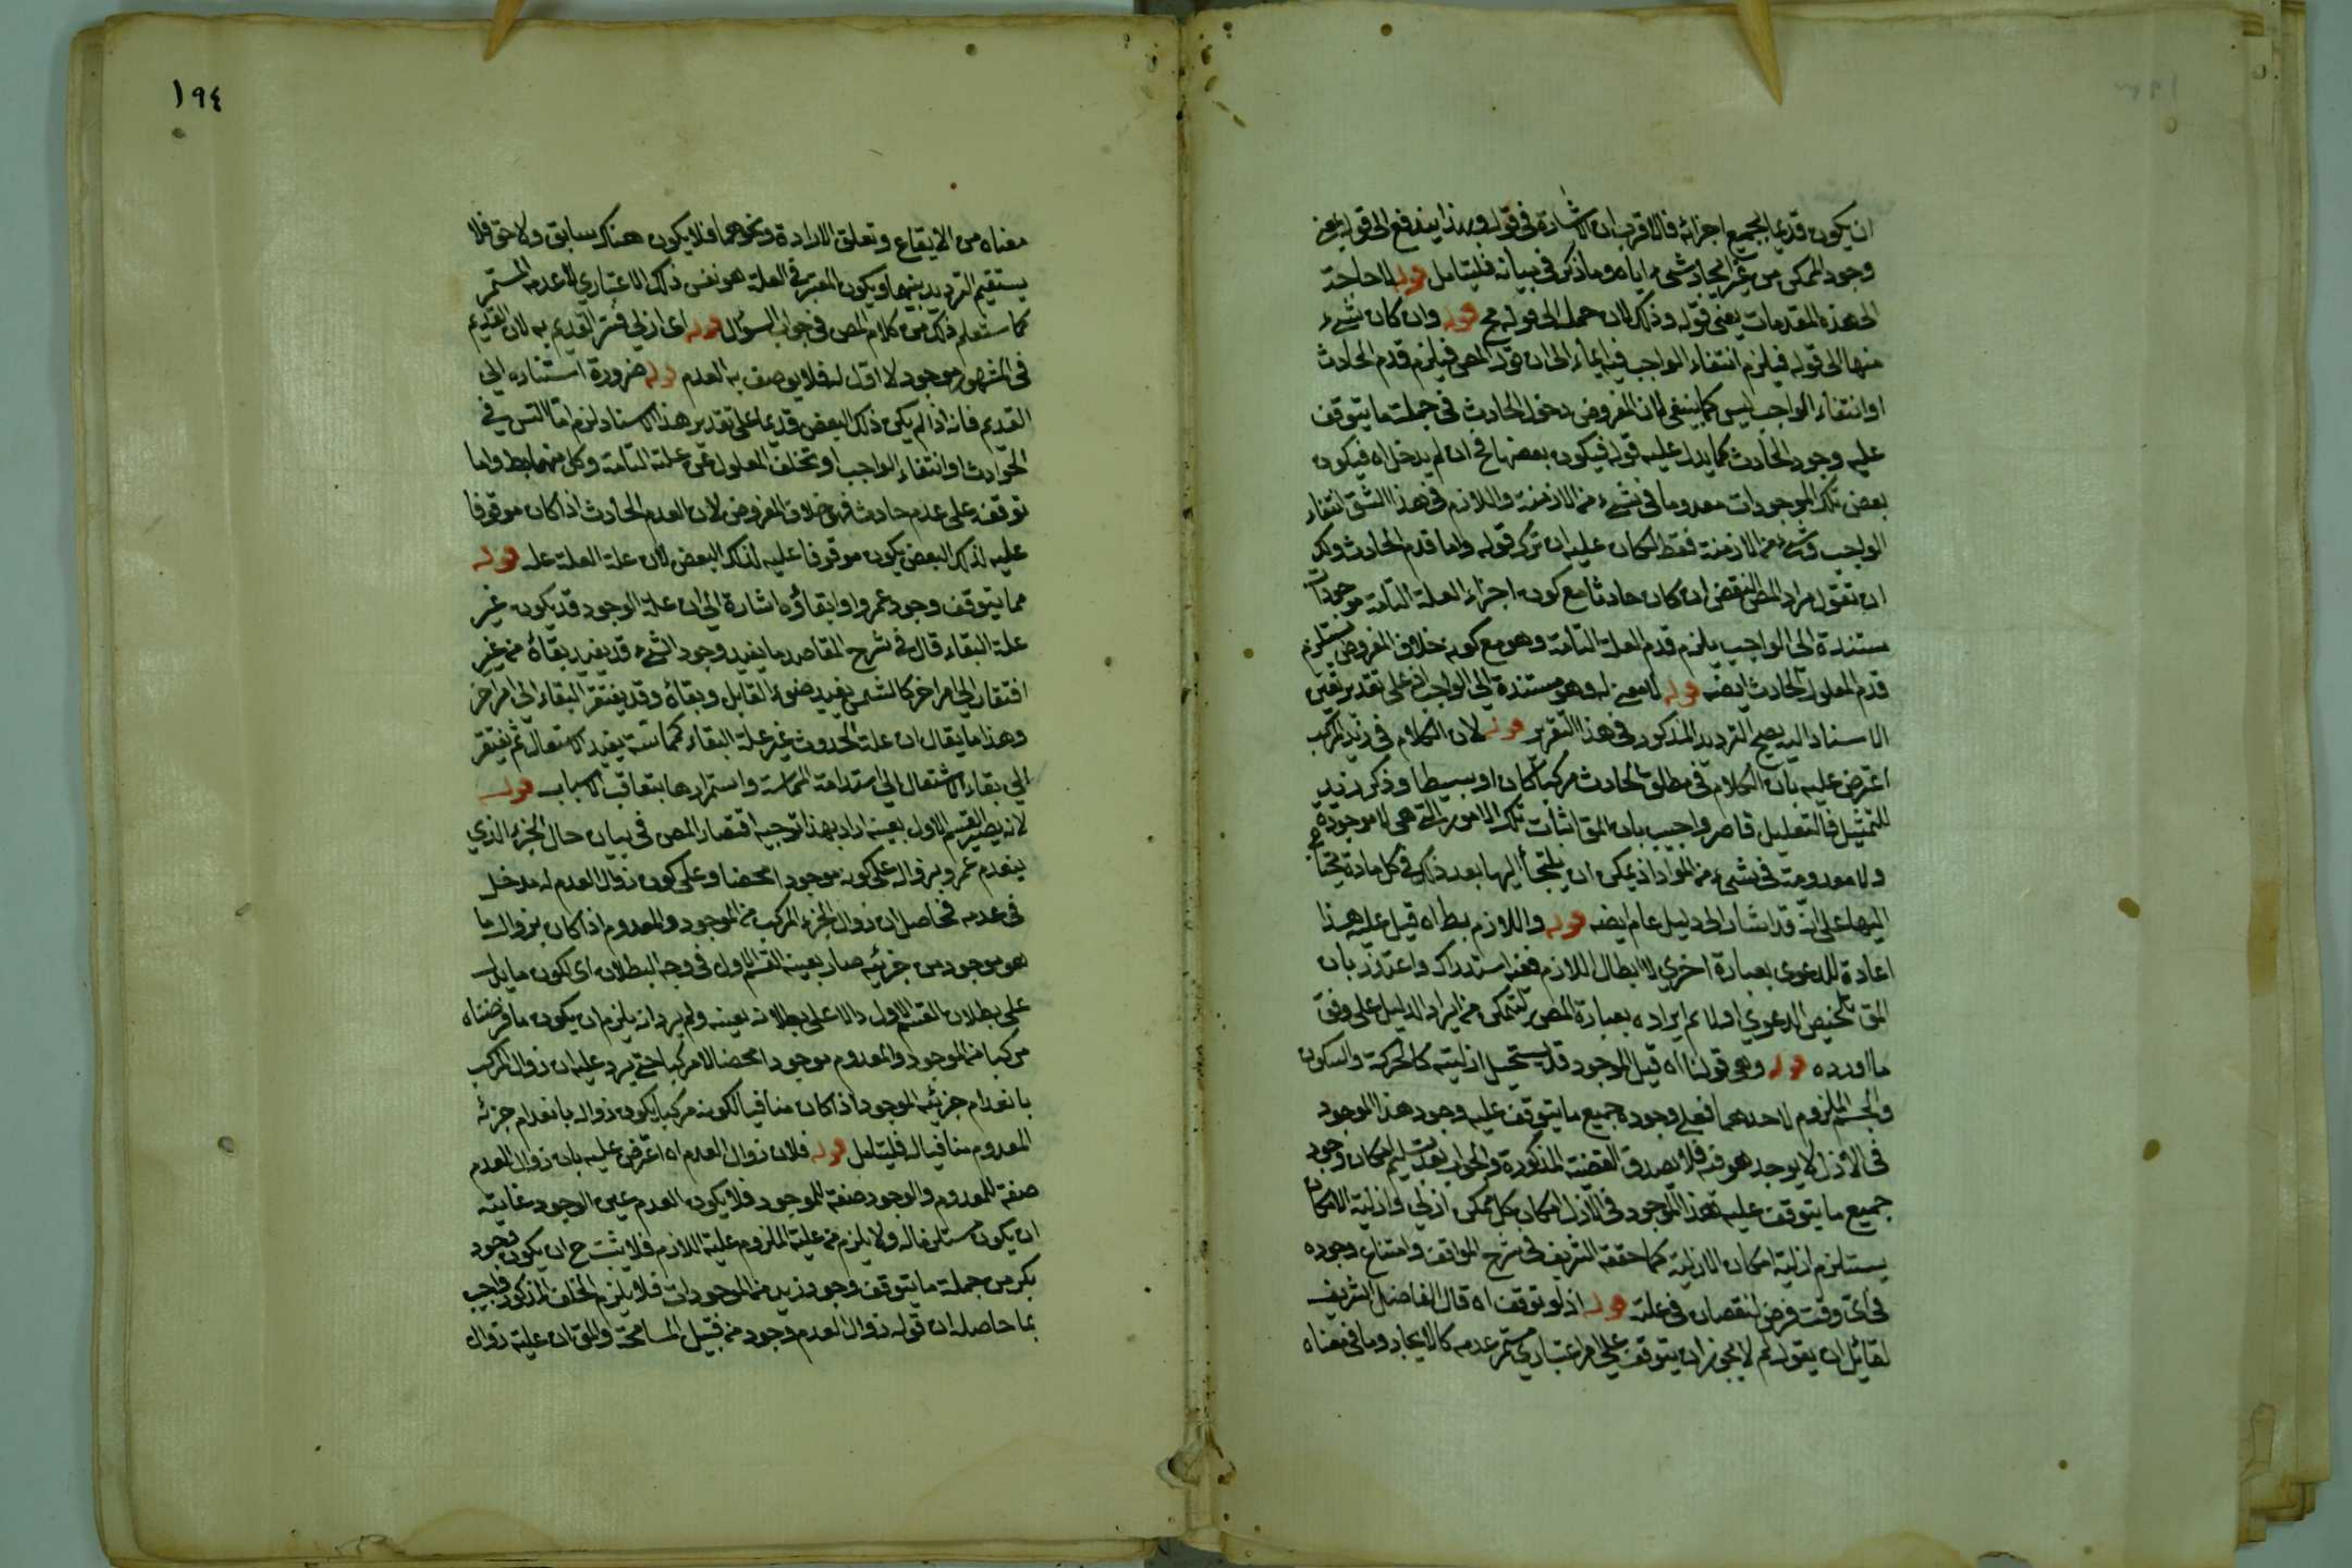 ان يكون قديما بجميع اجزائه فالاقرب ان الاشارة في قوله وبهذا يندفع الى قوله بغير
وجود الممكن من غير ايجاد شيء اياه وما ذكر في بيانه فليتامل قوله لا حاجة
الى هذه المقدمات يعني قوله وذلك لان جملة الى قوله مح قوله وان كان شيء
منها الى قوله فيلزم انتفاء الواجب فيه ايماء الى ان قول المص فيلزم قدم الحادث
او انتفاء الواجب ليس كما ينبغي لان المفروض دخول الحادث في جملة ما يتوقف
عليه وجود الحادث كما يدل عليه قوله فيكون بعضها ح ان لم يدخل اه فيكون
بعض تلك الموجودات معدوما في شيء من الازمنة واللازم في هذا الشق انتفاء
الواجب في شيء من الازمنة فقط لكان عليه ان يترك قوله واما قدم الحادث ولك
ان تقول مراد المص البعض ان كان حادثا مع كون اجزاء العلة التامة موجودات
مستندة الى الواجب يلزم قدم العلة التامة وهو مع كونه خلاف المفروض يستلزم
قدم المعلول الحادث ايضه قوله لا معنى له وهو مستندة الى الواجب اذ على تقدير تعين
الاسناد اليه يصح الترديد المذكور في هذا التقرير قوله لان الكلام في زيد المركب
اعترض عليه بان الكلام في مطلق الحادث مركبا كان او بسيطا وذكر زيد
للتمثيل فالتعليل قاصر واجيب بان المق اثبات تلك الامور التي هي لا موجودة
ولا معدومة في شيء من المواد اذ يمكن ان يلتجأ اليها بعد ذلك في كل مادة يحتاج
اليها على انه قد اشار الى دليل عام ايضه قوله واللازم بط اه قيل عليه هذا
اعادة للدعوى بعبارة اخرى لا ابطال اللازم ففيه استدراك واعتذر بان
المق تلخيص الدعوى اولا ثم ايراده بعبارة المص ليتمكن من ايراد الدليل على وفق
ما اورده قوله وهو قولنا اه قيل الموجود قد يستحيل ازليته كالحركة والسكون
والجسم الملزوم لاحدهما فعلى وجوده جميع ما يتوقف عليه وجود هذا الموجود
في الازل لا يوجد هو فيه فلا يصدق القضية المذكورة والجواب بعد تسليم امكان وجود
جميع ما يتوقف عليه هذا الموجود في الازل امكان كل ممكن ازلي وازلية الامكان
يستلزم ازلية امكان الازلية كما حققه الشريف في شرح المواقف وامتناع وجوده
في اي وقت فرض لنقصان في علته قوله اذ لو توقف اه قال الفاضل الشريف
لقائل ان يقول لم لا يجوز ان يتوقف على امر اعتباري مستمر عدمه كالايجاد وما في معناه
١٩٤
معناه من الايقاع وتعلق الارادة ونحوهما فلا يكون هناك سابق ولاحق فلا
يستقيم الترديد بينهما ويكون المعتبر في العلة هو نفس ذلك الاعتباري لا عدمه المستمر
كما ستعلم ذلك من كلام المص في جواب السؤال قوله اي ازلي فسر القديم به لان القديم
في المشهور موجود لا اول له فلا يوصف به العدم قوله ضرورة استناده الى
القديم فانه اذا لم يكن ذلك البعض قديما على تقدير هذا الاسناد لزم اما التس في
الحوادث او انتفاء الواجب او تخلف المعلول عن علته التامة وكل منهما بط واما
توقفه على عدم حادث فهو خلاف المفروض لان العدم الحادث اذا كان موقوفا
عليه لذلك البعض يكون موقوفا عليه لذلك البعض لان علة العلة علة قوله
مما يتوقف وجود عمرو او ابقاؤه اشارة الى ان علة الوجود قد يكون غير
علة البقاء قال في شرح المقاصد ما يفيد وجود الشيء قد يفيد بقاءه من غير
افتقار الى امر اخر كالشمس يفيد ضوء القابل وبقاءه وقد يفتقر البقاء الى امر اخر
وهذا ما يقال ان علة الحدوث غير علة البقاء كمماسة يفيد الاشتعال ثم يفتقر
الى بقاء الاشتعال الى استدامة المماسة واستمرارها بتعاقب الاسباب قوله
لانه يصير القسم الاول بعينه اراد بهذا توجيه اقتصار المص في بيان حال الجزء الذي
ينعدم عمرو بزواله على كونه موجودا محضا وعلى كون زوال العدم له مدخل
في عدمه فحاصل ان زوال الجزء المركب من الموجود والمعدوم اذا كان بزوال ما
هو موجود من جزئيه صار بعينه القسم الاول في وجه البطلان اي لكون ما يدل
على بطلان القسم الاول دالا على بطلانه بعينه ولم يرد انه يلزم ان يكون ما فرضناه
مركبا من الموجود والمعدوم موجودا محضا لا مركبا حتى يرد عليه ان زوال المركب
بانعدام جزئه الموجود اذا كان منافيا لكونه مركبا يكون زواله بانعدام جزئه
المعدوم منافيا له فليتامل قوله فلان زوال العدم اه اعترض عليه بان زوال العدم
صفة للمعدوم والوجود صفة للموجود فلا يكون العدم عين الوجود غايته
ان يكون مستلزما له ولا يلزم من علية الملزوم علية اللازم فلا يثبت ح ان يكون وجود
بكر من جملة ما يتوقف وجود زيد من الموجودات فلا يلزم الخلف المذكور واجيب
بما حاصله ان قوله زوال العدم وجود من قبيل المسامحة والمق ان علية زوال